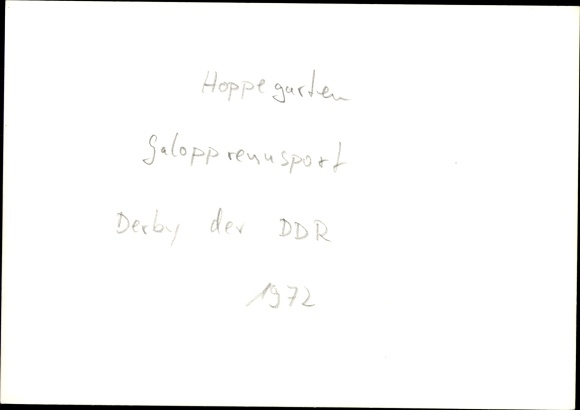 Hoppegarten
Galopprennsport
Derby der DDR
1972